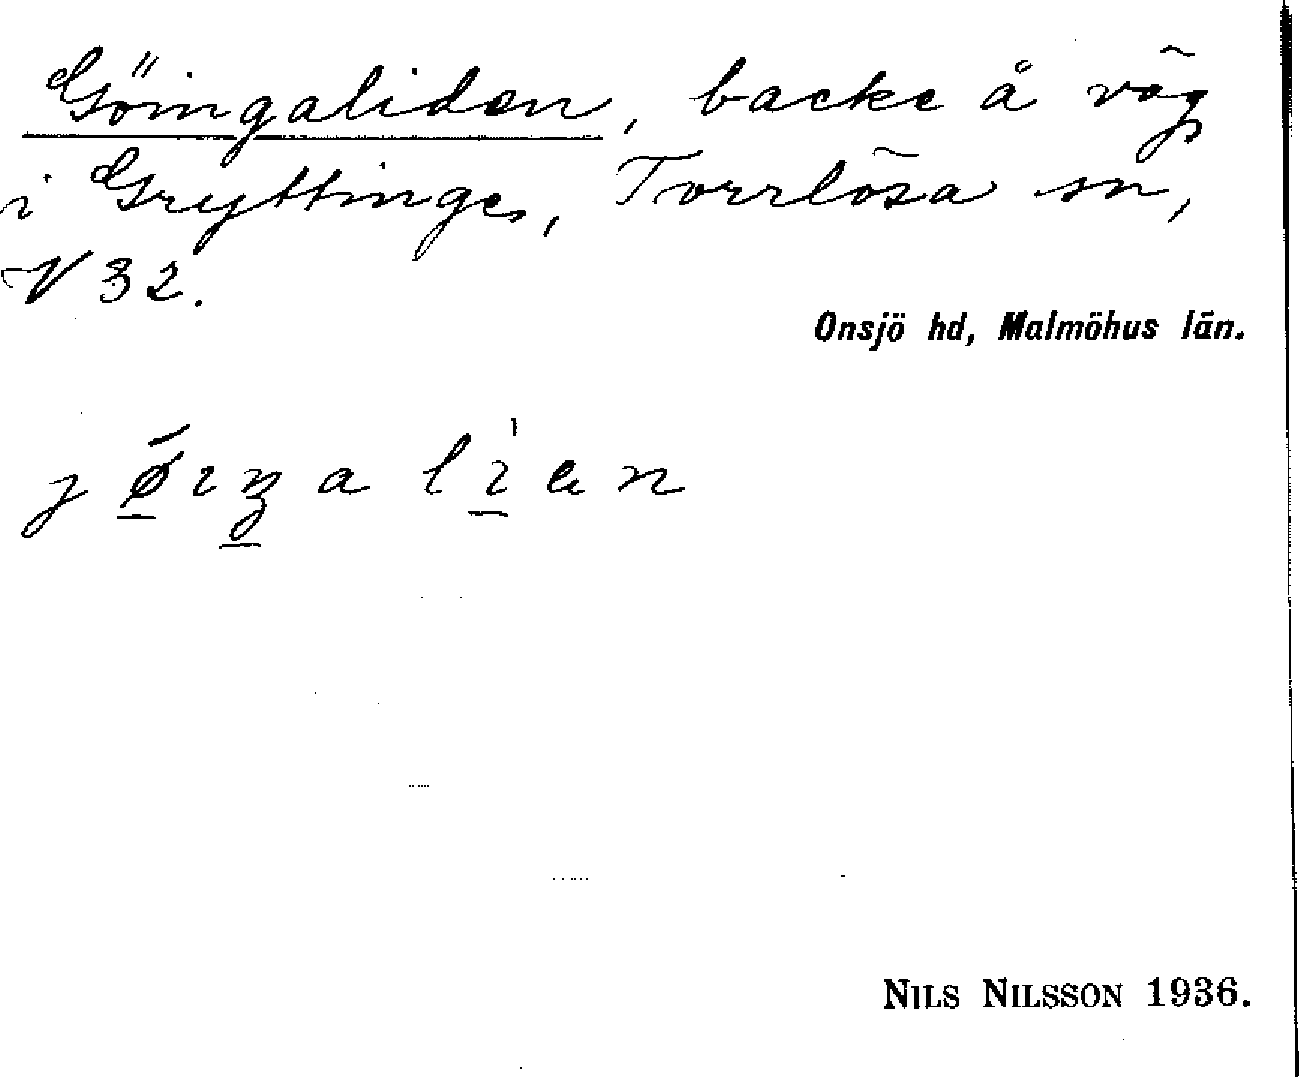 Göingaliden, backe å väg
i Gryttinge, Torrlösa sn,
V 32.
Onsjö hd, Malmöhus län.
NILS NILSSON 1936.